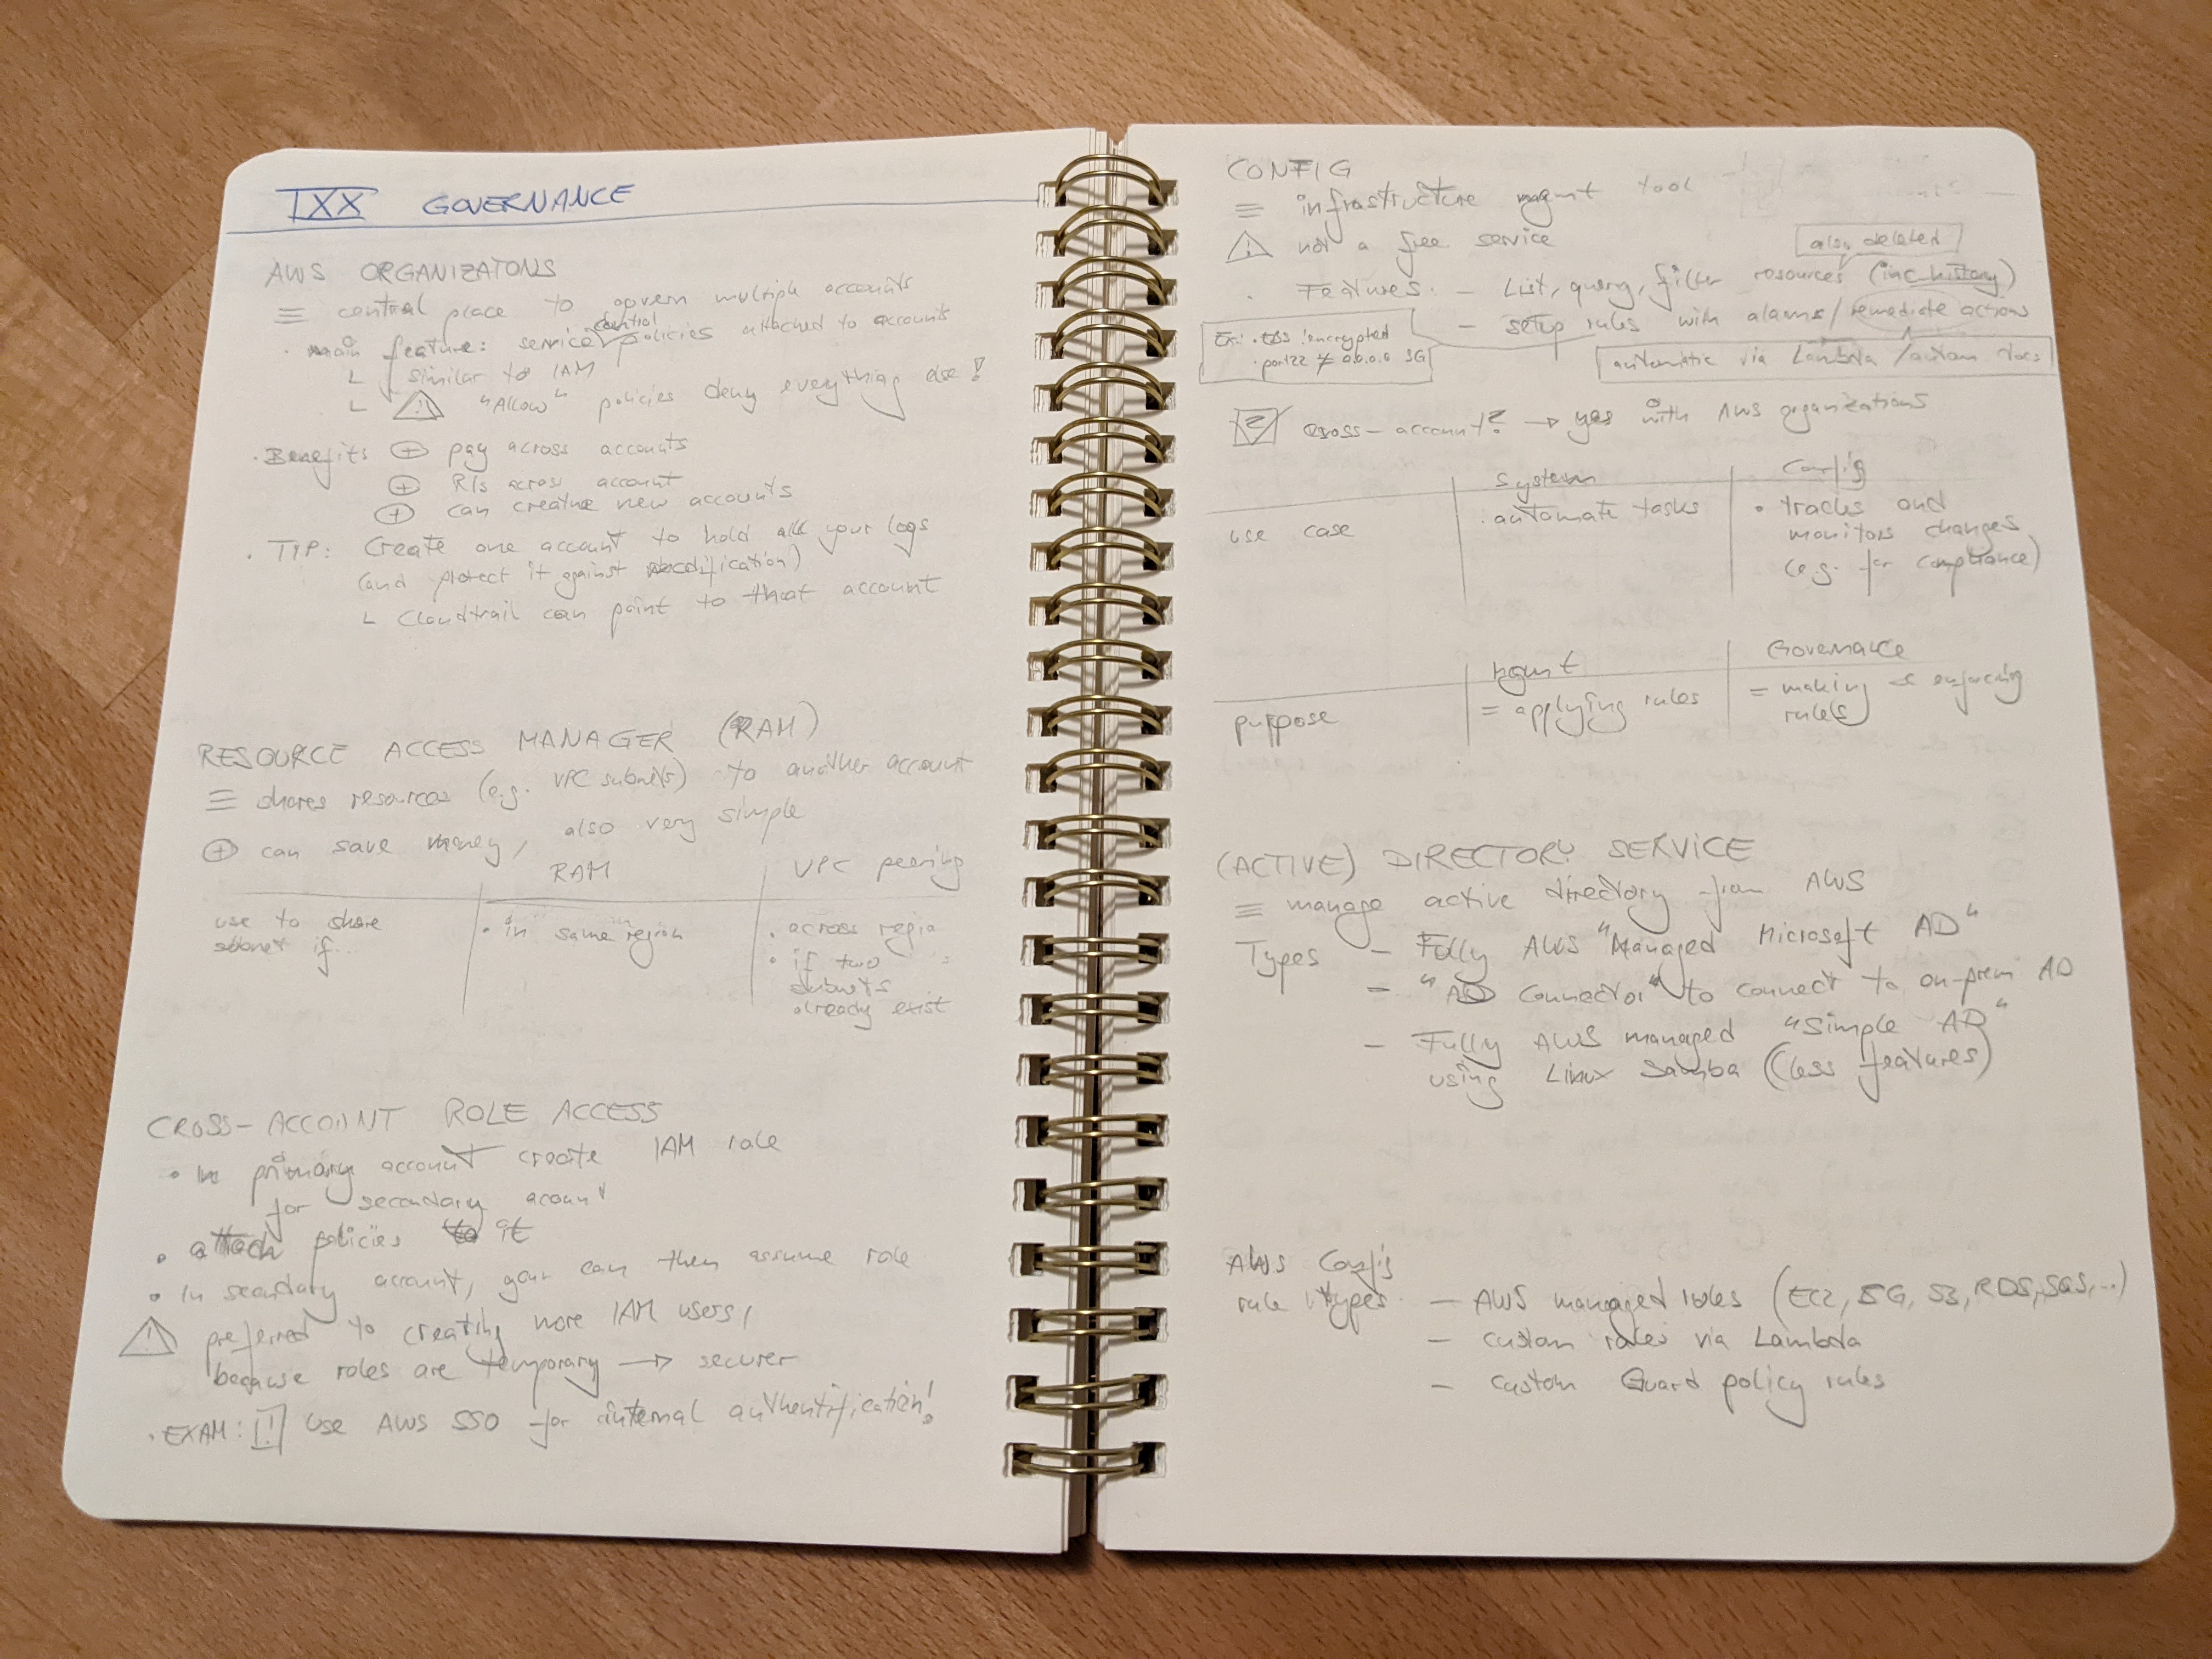 IXX GOVERNANCE
AWS ORGANIZATONS
≡ central place to govern multiple accounts
· main feature: service control policies attached to accounts
└ similar to IAM
└ ⚠ "Allow" policies deny everything else!
· Benefits ⊕ pay across accounts
⊕ RIs across account
⊕ can creatne new accounts
· TIP: Create one account to hold all your logs
(and protect it against modification)
└ Cloudtrail can point to that account
RESOURCE ACCESS MANAGER (RAM)
≡ shares resources (e.g. VPC subnets) to another account
⊕ can save money, also very simple
RAM VPC peering
use to share · in same region · across regio
subnet if... · if two
subnets
already exist
CROSS-ACCOUNT ROLE ACCESS
· In primary account create IAM role
for secondary acount
· attach policies to it
· In secondary account, you can then assume role
⚠ preferred to creating more IAM users,
because roles are temporary → securer
· EXAM: ! Use AWS SSO for internal authentification!
CONFIG
≡ infrastructure mgmt tool
⚠ not a free service
also deleted
· Features: - List, query, filter resources (inc. history)
- setup rules with alarms/remediate actions
Ex: · EBS encrypted
· port22 ≠ 0.0.0.0 SG
automatic via Lambda / autom docs
? cross-account? → yes with AWS organizations
System Config
use case · automate tasks · tracks and
monitors changes
(e.g. for compliance)
mgmt Governance
purpose = applying rules = making & enforcing
rules
(ACTIVE) DIRECTORY SERVICE
≡ manage active directory from AWS
Types - Fully AWS "Managed Microsoft AD"
- "AD Connector" to connect to on-prem AD
- Fully AWS managed "Simple AD"
using Linux Samba (less features)
AWS Config
rule types - AWS managed rules (EC2, SG, S3, RDS, SQS, ...)
- custom rules via Lambda
- custom Guard policy rules